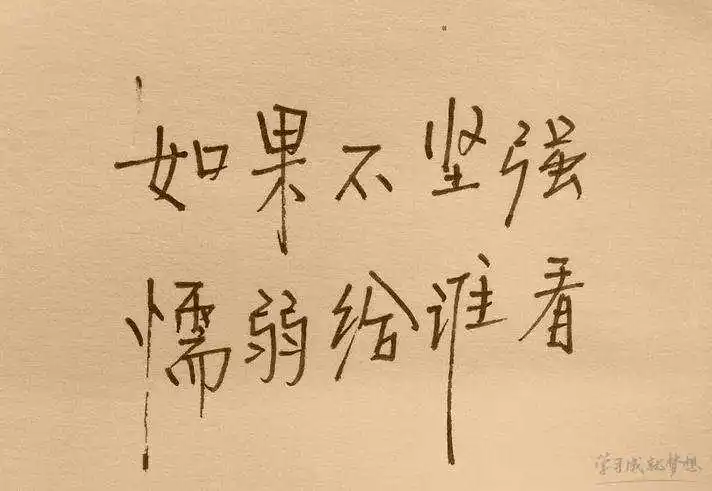 如果不坚强
懦弱给谁看
学习成就梦想